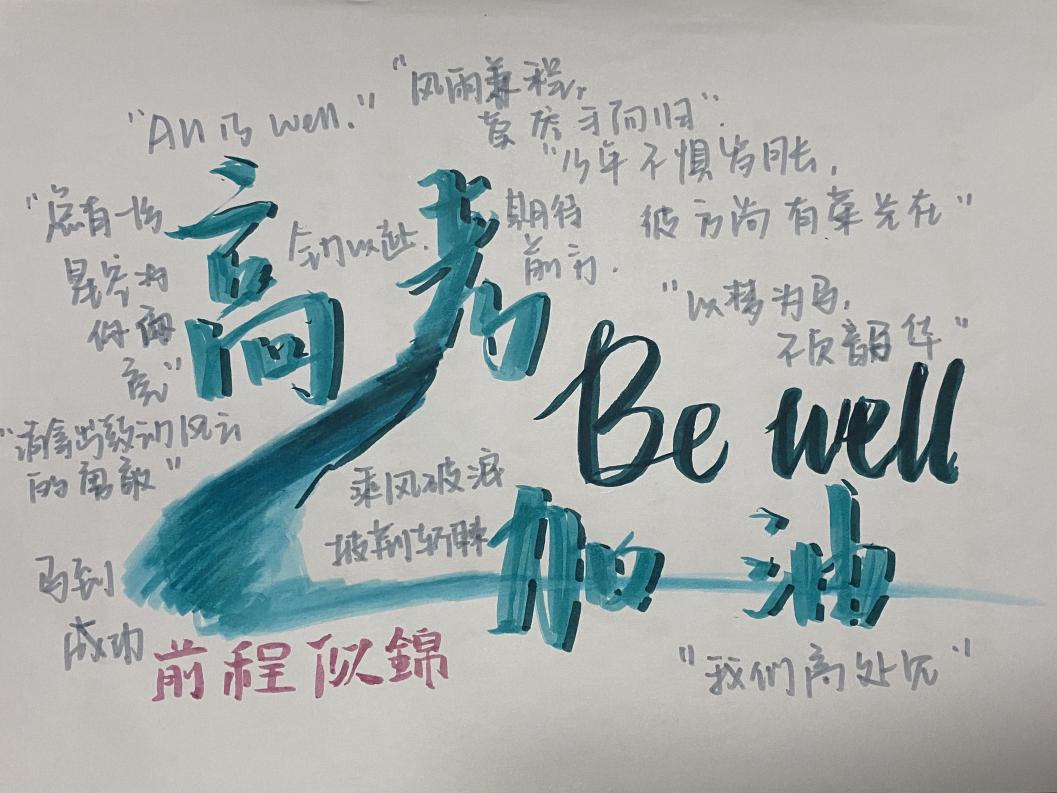 "All is well."
"风雨兼程,
待月而归".
"少年不惧岁月长,
彼方尚有荣光在"
"总有一份
星光为
你而
亮"
高考
全力以赴.
期待
前方.
"以梦为马,
不负韶华"
Be well
"请拿出敢动风云
的勇敢"
乘风破浪
披荆斩棘
加油
马到
成功
前程似錦
"我们高处见"